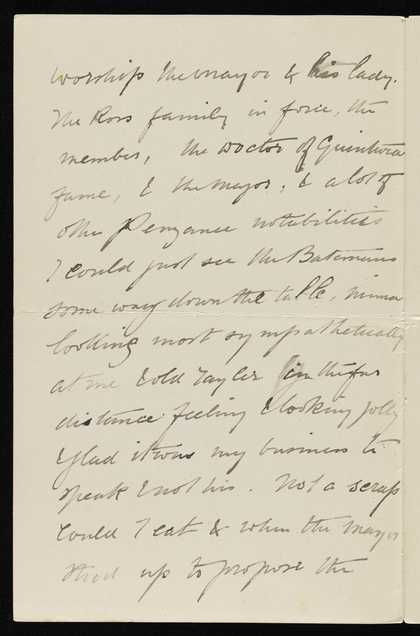 worship the mayor & his lady.
The Ross family in force, the
member, the Doctor of
fame, & the Mayor, & a lot of
other Penzance notabilities
I could just see the Batemans
some way down the table, Minna
looking most sympathetically
at me & old Tayler in the far
distance feeling & looking jolly
& glad it was my business to
speak & not his. Not a scrap
could I eat & when the Mayor
stood up to propose the